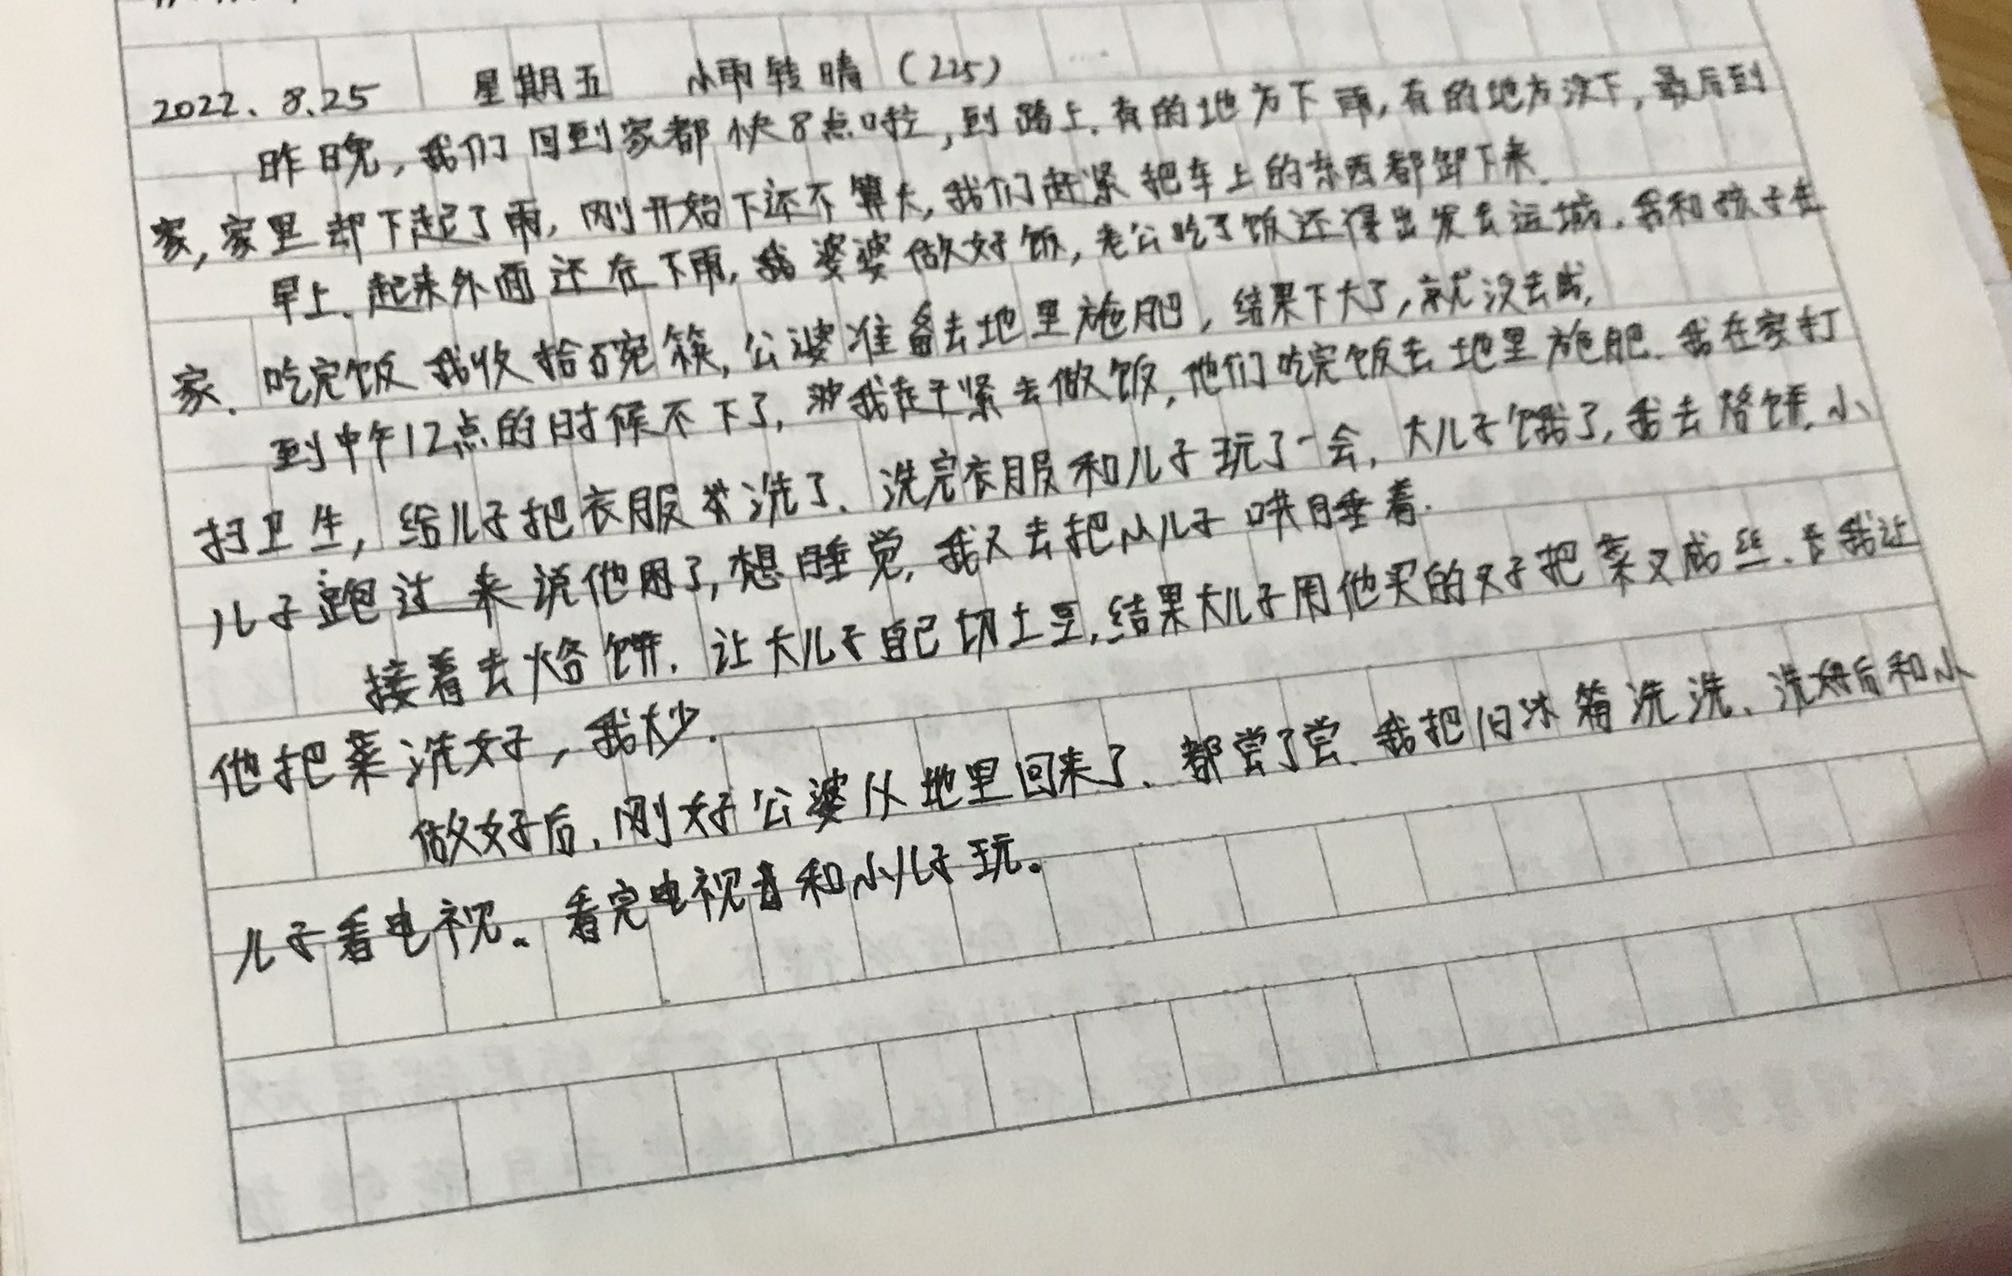 2022.8.25 星期五 小雨转晴（225）
昨晚，我们回到家都快8点啦，到路上.有的地方下雨，有的地方没下，最后到
家，家里却下起了雨，刚开始下还不算大，我们赶紧把车上的东西都卸下来.
早上.起来外面还在下雨，我婆婆做好饭，老公吃了饭还得出发去运城.我和孩子在
家.吃完饭我收拾碗筷，公婆准备去地里施肥，结果下大了，就没去成.
到中午12点的时候不下了，我赶紧去做饭，他们吃完饭去地里施肥.我在家打
扫卫生，给儿子把衣服洗了.洗完衣服和儿子玩了一会，大儿子饿了，我去烙饼.小
儿子跑过来说他困了，想睡觉，我又去把小儿子哄睡着.
接着去烙饼.让大儿子自己切土豆，结果大儿子用他买的叉子把菜叉成丝.我让
他把菜洗好，我炒.
做好后.刚好公婆从地里回来了.都尝了尝.我把旧冰箱洗洗.洗好后和小
儿子看电视。看完电视和小儿子玩。